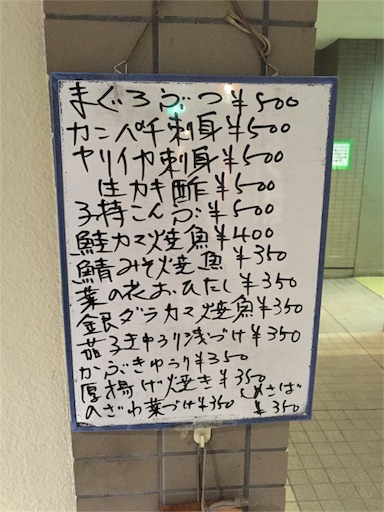 まぐろぶつ ¥500
カンパチ刺身 ¥500
ヤリイカ刺身 ¥500
生カキ酢 ¥500
子持こんぶ ¥500
鮭カマ焼魚 ¥400
鯖みそ焼魚 ¥350
菜の花おひたし ¥350
銀ダラカマ焼魚 ¥350
茄子きゅうり浅づけ ¥350
かぶきゅうり ¥350
厚揚げ焼き ¥350 しめさば
のざわ菜づけ ¥350 ¥350